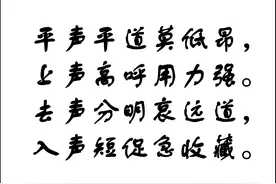 平声平道莫低昂，
上声高呼用力强。
去声分明哀远道，
入声短促急收藏。